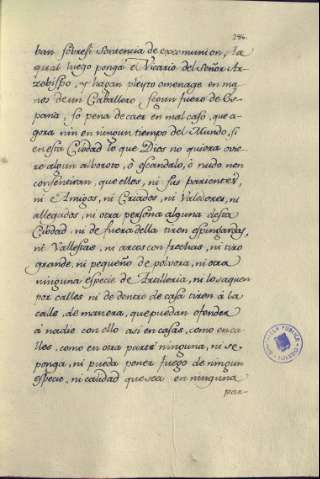 286.
ban sobresi sentencia de excomunion, la
qual luego ponga el Vicario del Señor Ar-
zobispo, y hagan pleyto omenage en ma-
nos de un Caballero, segun fuero de Es-
paña, só pena de caer en mal caso, que a-
gora nin en ningun tiempo del Mundo, si
en esta Ciudad lo que Dios no quiera ovie-
re algun alboroto, ó escandalo, ó ruido non
consentiran, que ellos, ni sus parientes,
ni Amigos, ni Criados, ni Valedores, ni
allegados, ni otra persona alguna desta
Ciudad, ni de fuera della tiren espingardas,
ni Vallestas, ni arcos con frechas, ni tiro
grande, ni pequeño de polvora, ni otra
ninguna especie de Artilleria, ni lo saquen
por calles ni de dentro de casa tiren á la
calle de manera, que puedan ofender
á nadie con ello asi en casas, como en ca-
lles, como en otra parte ninguna, ni se
ponga, ni pueda poner fuego de ningun
especie, ni calidad que sea en ninguna
par-